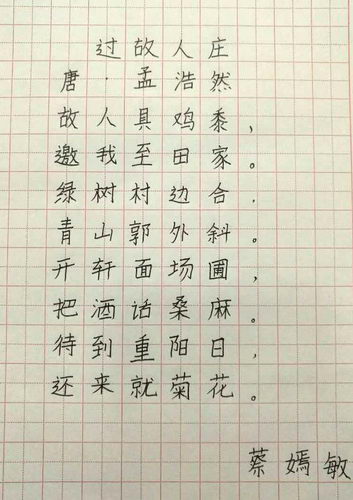 过故人庄
唐·孟浩然
故人具鸡黍，
邀我至田家。
绿树村边合，
青山郭外斜。
开轩面场圃，
把酒话桑麻。
待到重阳日，
还来就菊花。
蔡嫣敏